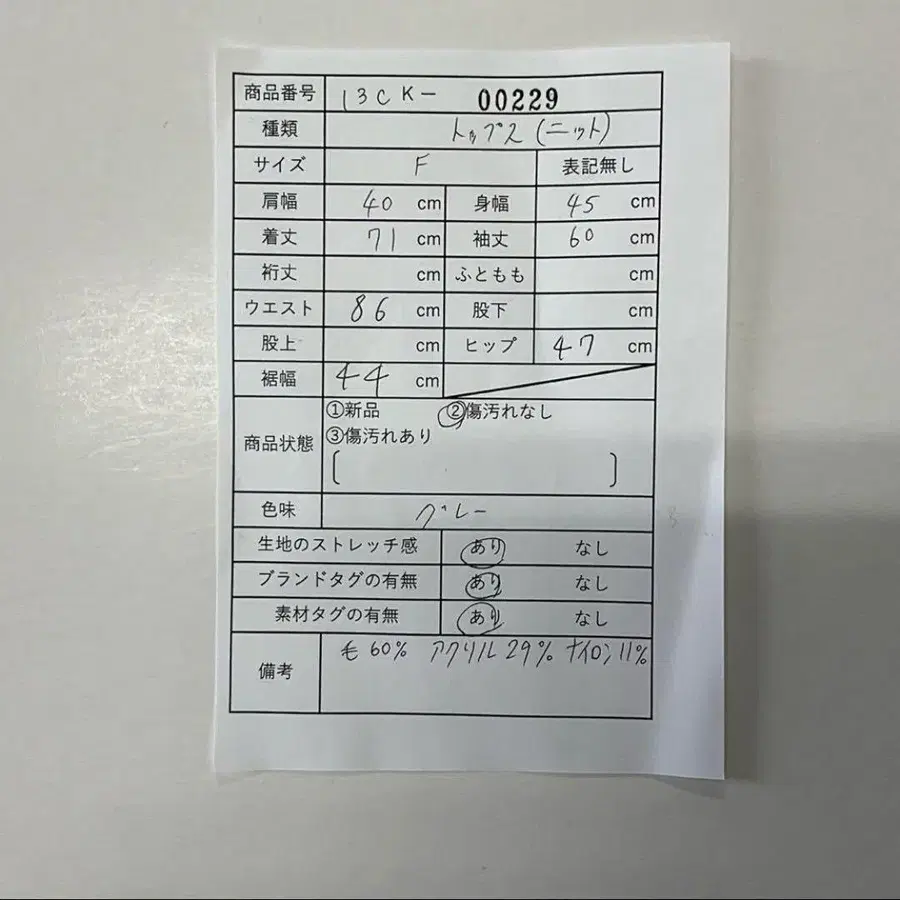 商品番号 13CK- 00229
種類 トップス(ニット)
サイズ F 表記無し
肩幅 40 cm 身幅 45 cm
着丈 71 cm 袖丈 60 cm
裄丈 cm ふともも cm
ウエスト 86 cm 股下 cm
股上 cm ヒップ 47 cm
裾幅 44 cm
商品状態 ①新品 ②傷汚れなし
③傷汚れあり
[ ]
色味 グレー
生地のストレッチ感 あり なし
ブランドタグの有無 あり なし
素材タグの有無 あり なし
備考 毛60% アクリル29% ナイロン11%